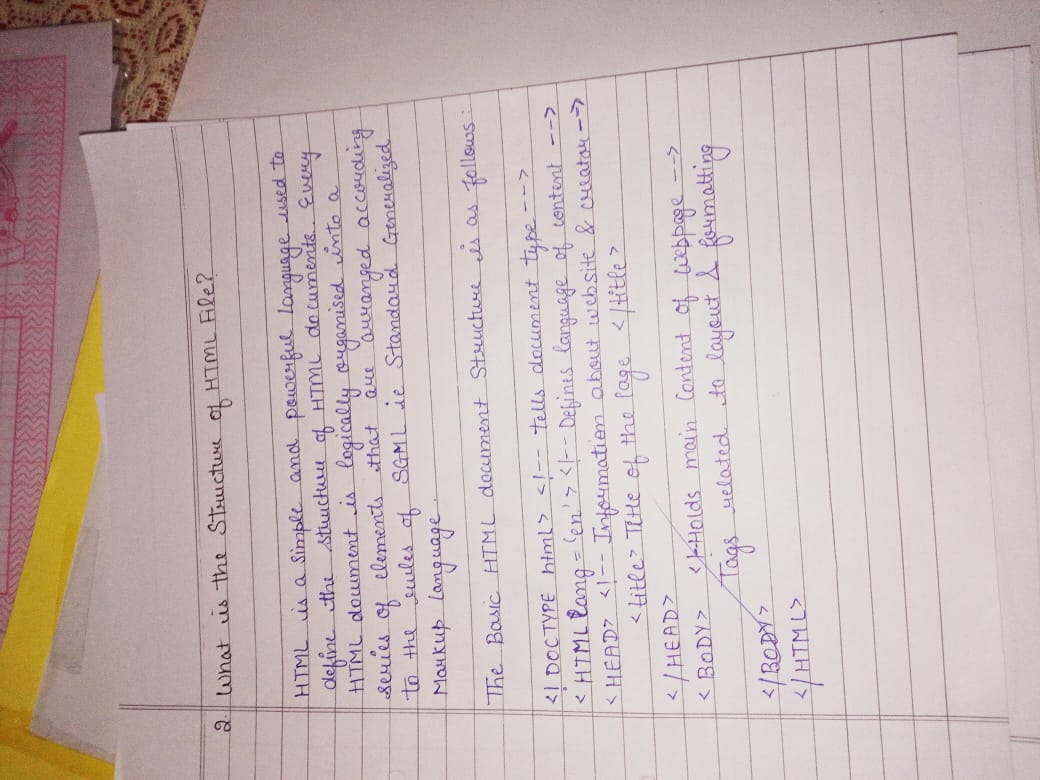 2. What is the Structure of HTML File?
HTML is a simple and powerful language used to
define the structure of HTML documents. Every
HTML document is logically organised into a
series of elements that are arranged according
to the rules of SGML ie Standard Generalized
Markup language.
The Basic HTML document Structure is as follows:
<! DOCTYPE html> <!-- tells document type -->
< HTML lang = 'en' > <!-- Defines language of content -->
< HEAD> <!-- Information about website & creator -->
< title> Title of the Page </title>
</HEAD>
< BODY> <!-- Holds main Content of webpage -->
Tags related to layout & formatting
</BODY>
</HTML>